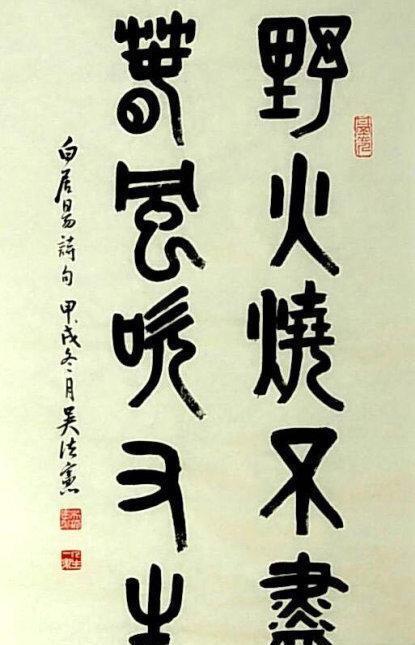 野火燒不盡
春風吹又生
白居易詩句 甲戌冬月 吴法憲